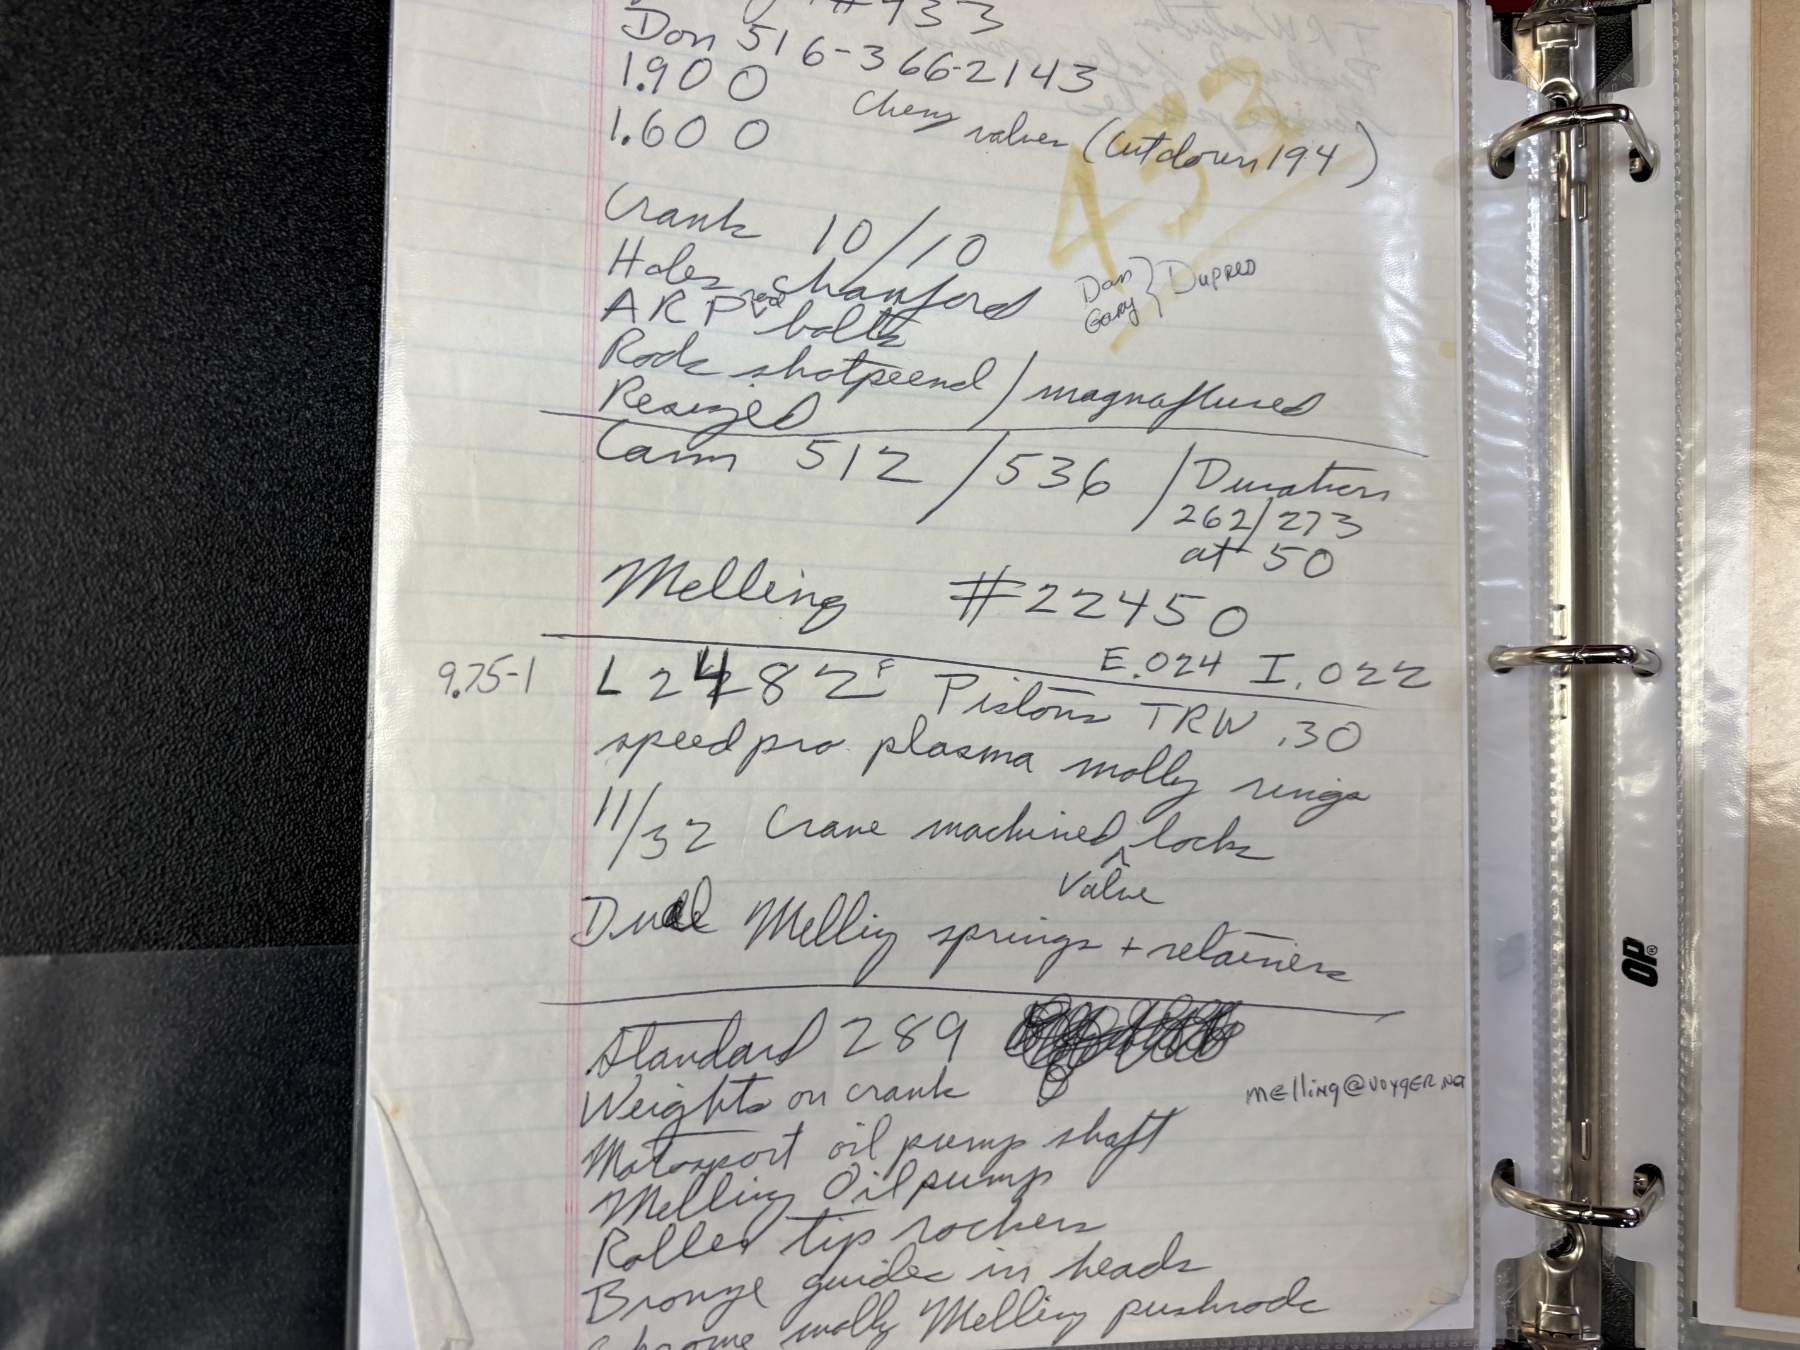 #433
Don 516-366-2143
1.900
1.600 Chevy valves (Cutdown 194)
433
Crank 10/10
Holes chamford
Dan
Gary } Dupreo
ARP rod bolts
Rods shotpeend / magnafluxed
Resized
Cam 512 / 536 / Duration
262/273
at 50
Melling #22450
E.024 I.022
9.75-1 L2482F Pistons TRW .30
speedpro plasma molly rings
11/32 Crane machined valve locks
Duel Melling springs + retainers
Standard 289
Weights on crank
melling@voyger.ne
Motorsport oil pump shaft
Melling Oil pump
Roller tip rockers
Bronze guides in heads
chrome molly Melling pushrods
OP®